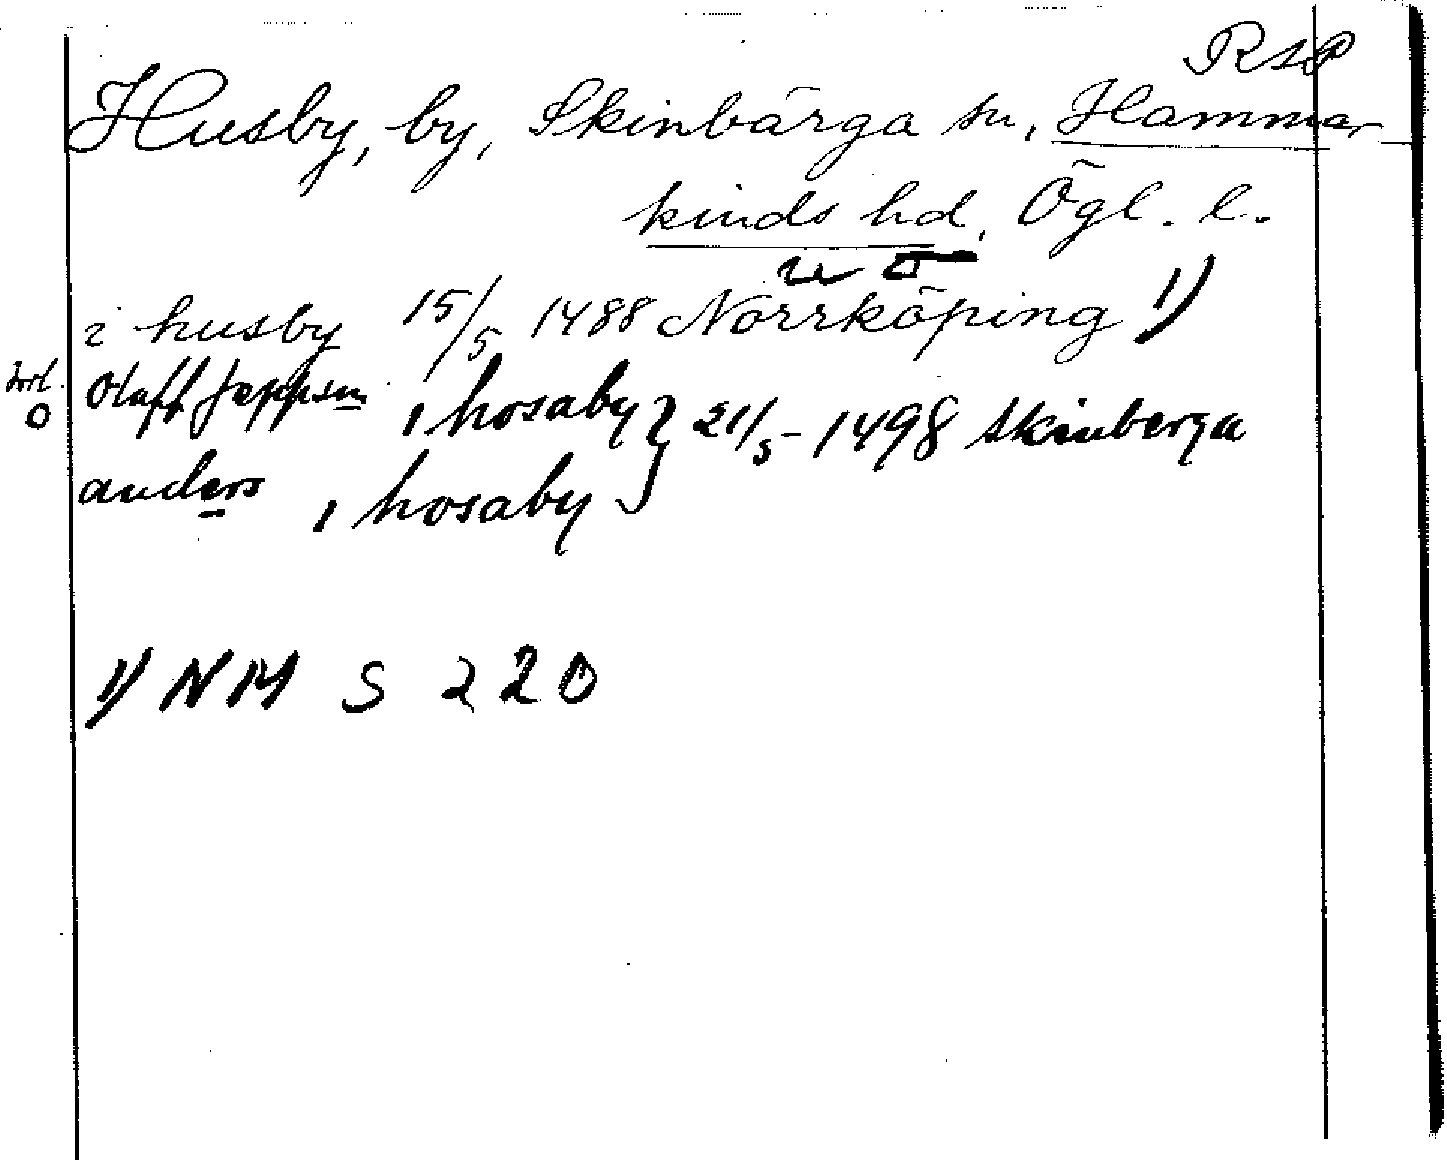 RAP
Husby, by, Skinbärga sn, Hammar
kinds hd, Ögl. l.
u ö
i husby 15/5 1488 Norrköping 1)
o Olaff Jeppsen i hosaby } 21/5 - 1498 Skinberga
anders i hosaby
1) NM S 220